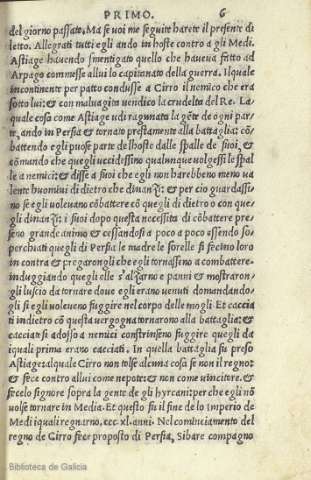 PRIMO. 6
del giorno passato. Ma se voi me seguite harete il presente di
letto. Allegrati tutti egli ando in hoste contro a gli Medi.
Astiage havendo smentigato quello che haveva fatto ad
Arpago commesse allui lo capitanato della guerra. Il quale
incontinente per patto condusse a Cirro il nemico che era
sotto lui: & con malvagita vendico la crudelta del Re. La
quale cosa come Astiage udi ragunata la gēte de ogni par=
te, ando in Persia & tornato prestamente alla battaglia: cō
battendo egli puose parte de lhoste dalle spalle de suoi, &
cōmando che quegli uccidessino qualunque volgessi le spal
le a nemici: & disse a suoi che egli non harebbeno meno va
lente huomini di dietro che dinanzi: & per cio guardassi=
no se egli volevano cōbattere cō quegli di dietro o con que=
gli dinanzi: i suoi dopo questa necessita di cōbattere pre=
seno grande animo & cessandosi a poco a poco essendo so=
perchiati quegli di Persia le madre le sorelle si fecino loro
in contra & pregarongli che egli tornassino a combattere=
indugiando quegli elle s'alzarno e panni & mostraron=
gli luscio da tornare dove egli erano venuti domandando=
gli si egli volevano fuggire nel corpo delle mogli. Et caccia
ti indietro cō questa vergogna tornarono alla battaglia: &
cacciatisi adosso a nemici constrinseno fuggire quegli da
iquali prima erano cacciati. In quella battaglia fu preso
Astiage: al quale Cirro non tolse alcuna cosa se non il regno:
& fece contro allui come nepote: & non come vincitore. &
fecelo signore sopra la gente de gli hyrcani: per che egli nō
volse tornare in Media. Et questo fu il fine de lo imperio de
Medi iquali regnarno. ccc. xl. anni. Nel cominciamento del
regno de Cirro fece proposto di Persia, Sibare compagno
Biblioteca de Galicia